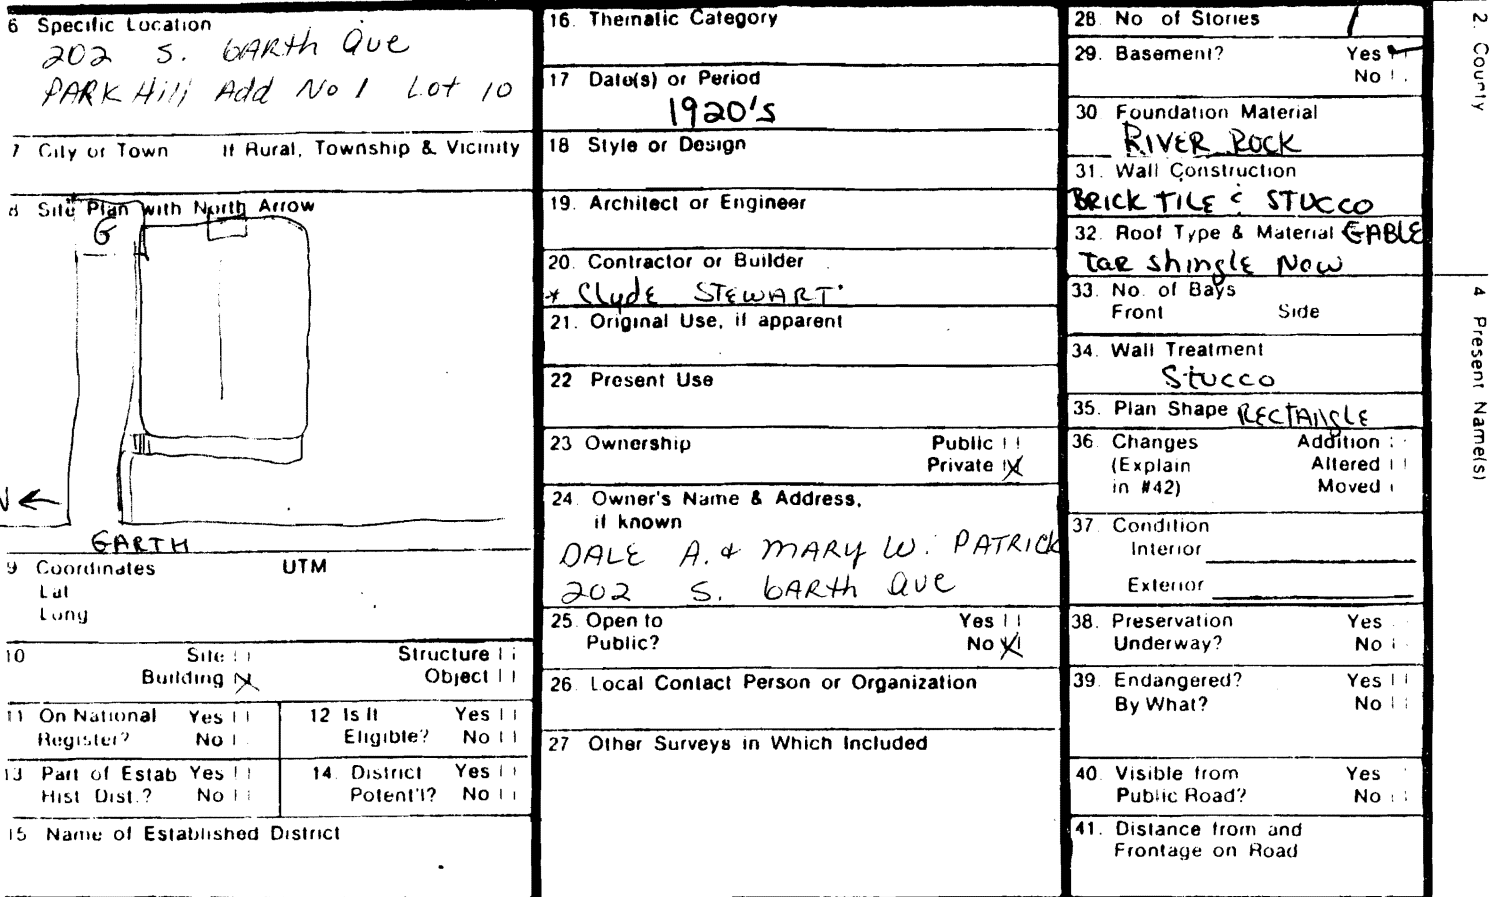 6 Specific Location
202 S. GARth Ave
PARK Hill Add No 1 Lot 10
7 City or Town If Rural, Township & Vicinity
8 Site Plan with North Arrow
G
N
GARTH
9 Coordinates UTM
Lat
Long
10 Site Structure
Building Object
11 On National Register? Yes No
12 Is It Eligible? Yes No
13 Part of Estab Hist. Dist.? Yes No
14. District Potent'l? Yes No
15 Name of Established District
16. Thematic Category
17 Date(s) or Period
1920's
18 Style or Design
19. Architect or Engineer
20. Contractor or Builder
* Clyde STEWART
21. Original Use, if apparent
22 Present Use
23 Ownership Public
Private
24. Owner's Name & Address,
if known
DALE A. & MARY W. PATRICK
202 S. GARth Ave
25. Open to Yes
Public? No
26. Local Contact Person or Organization
27 Other Surveys in Which Included
28. No of Stories 1
29. Basement? Yes
No
30 Foundation Material
RIVER ROCK
31. Wall Construction
BRICK TILE & STUCCO
32. Roof Type & Material GABLE
Tar shingle Now
33. No. of Bays
Front Side
34. Wall Treatment
Stucco
35. Plan Shape RECTANGLE
36. Changes Addition
(Explain Altered
in #42) Moved
37. Condition
Interior
Exterior
38. Preservation Yes
Underway? No
39. Endangered? Yes
By What? No
40. Visible from Yes
Public Road? No
41. Distance from and
Frontage on Road
2. County
4 Present Name(s)